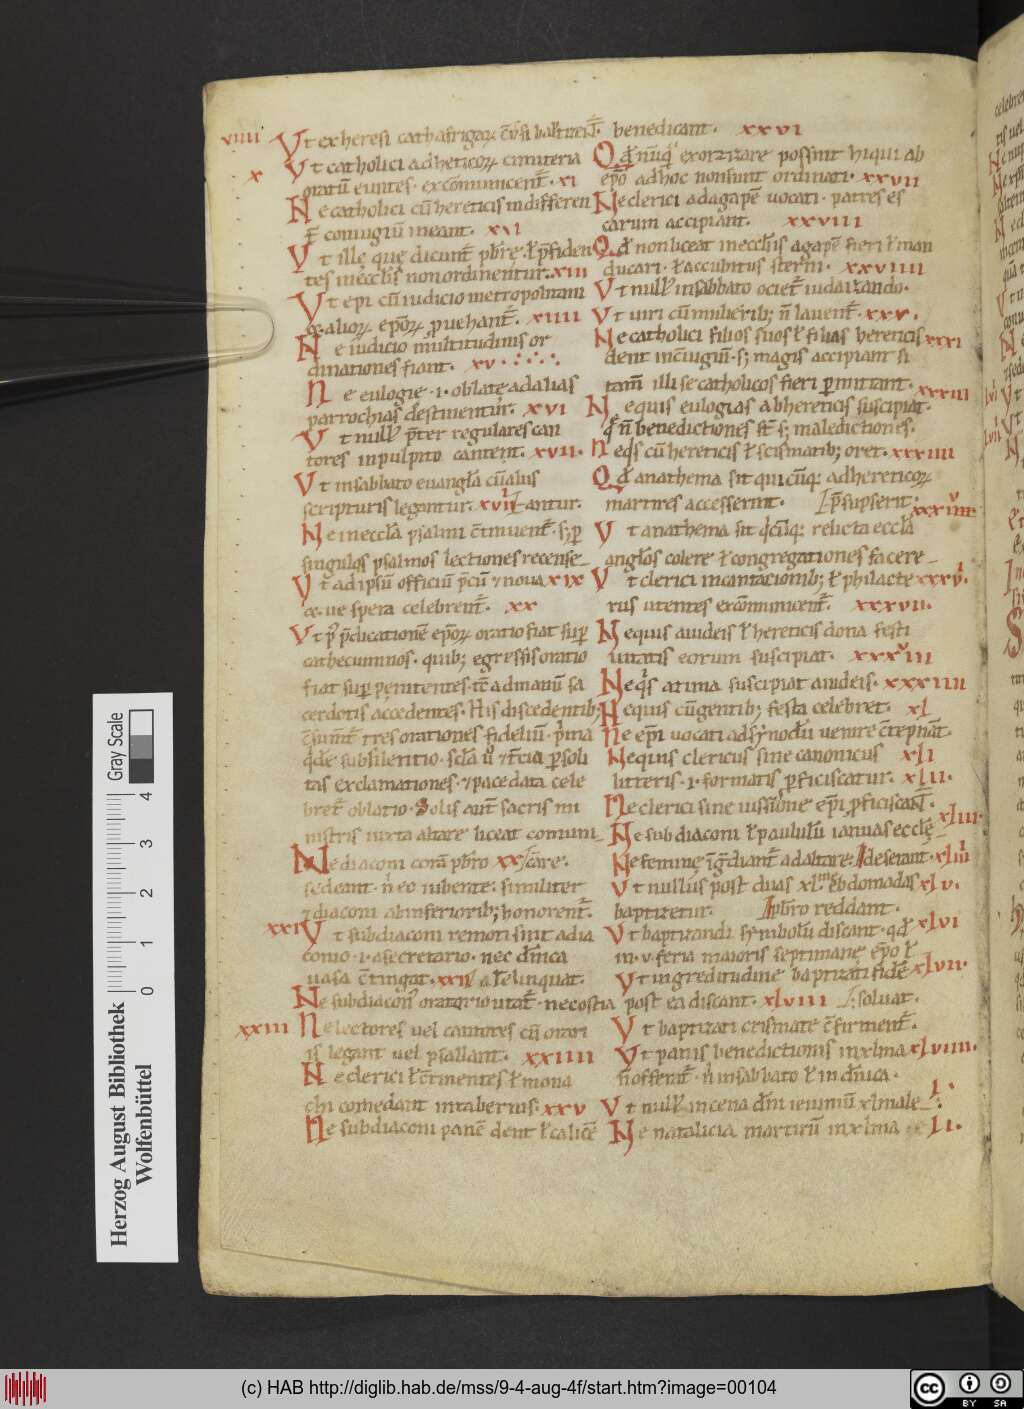 viiii Vt ex heresi catafrigaꝝ c̄v̄si baptizēt̄.
x Vt catholici ad heticoꝝ cimiteria
oratū euntes. excōmunicent̄. xi
Ne catholici cū hereticis indifferen
t̄ coniugiū ineant. xii
Vt ille que dicunt̄ pbr̄e. ł p̄siden
tes in eccl̄is non ordinentur. xiii
Vt ep̄i cū iudicio metropolitani
& alioꝝ ep̄oꝝ prouehant̄. xiiii
Ne iudicio multitudinis or
dinationes fiant. xv
Ne eulogie .i. oblate ad alias
parrochias destinentur. xvi
Vt null' p̄ter regulares can
tores in pulpito cantent. xvii.
Vt in sabbato euangl̄a cū aliis
scripturis legantur. xviii tantur.
Ne in eccl̄a psalmi c̄tinuent̄. s; ꝑ
singulos psalmos lectiones recense
Vt ad ipsū officiū p̄cū & nona xix
&. uespera celebrent̄. xx
Vt p' p̄dicationē ep̄oꝝ oratio fiat suꝑ
cathecuminos. quib; egressis oratio
fiat suꝑ penitentes. tc̄ ad manū sa
cerdotis accedentes. His discedentib;
c̄sum̄t̄ tres orationes fideliū. p̄ma
q̄dē sub silentio. scd̄a ū & t̄cia ꝑ soli
tas exclamationes. & pace data cele
bret̄ oblatio. Solis aut̄ sacris mi
nistris iuxta altare liceat comuni
Ne diaconi corā pbr̄o xx care.
sedeant. n̄ eo iubente. similiter
& diaconi ab inferiorib; honorent̄.
xxi Vt subdiaconi remoti sint a dia
conio .i. a secretario. nec dn̄ica
uasa c̄tingat. xxii relinquat.
Ne subdiacon' oratorio utat̄. nec ostia
xxiii Ne lectores uel cantores cū orari
is legant uel psallant. xxiiii
Ne clerici ł c̄tinentes ł mona
chi comedant in tabernis. xxv
Ne subdiaconi panē dent ł calicē
benedicant. xxvi
Qd̄ nūq' exorzizare possint hi qui ab
ep̄o ad hoc non sunt ordinati. xxvii
Ne clerici ad agapē uocati. partes es
carum accipiant. xxviii
Qd̄ non liceat in eccl̄is agapē fieri ł man
ducari. ł accubitus sterni. xxviiii
Vt null' in sabbato ociet̄ iudaizando.
Vt uiri cū mulierib; n̄ lauent̄. xxx.
Ne catholici filios suos ł filias hereticis xxxi
dent in c̄iugiū. s; magis accipiant si
tam̄ illi se catholicos fieri ꝑmittant. xxxiii
Ne quis eulogias ab hereticis suscipiat.
q̄ n̄ benedictiones st̄ s; maledictiones.
Ne q̄s cū hereticis ł scismatib; oret. xxxiiii
Qd̄ anathema sit quicūq; ad hereticoꝝ
martires accesserint. p̄supserit.
Vt anathema sit q̄cūq; relicta eccl̄a
angl̄os colere ł congregationes facere
Vt clerici incantationib; ł philacte xxxvi.
riis utentes excōmunicent̄. xxxvii.
Ne quis a iudeis ł hereticis dona festi
uitatis eorum suscipiat. xxxviii
Ne q̄s azima suscipiat a iudeis. xxxviiii
Ne quis cū gentib; festa celebret. xl
Ne ep̄i uocati ad synodū uenire c̄tēpnāt.
Ne quis clericus sine canonicus xli
litteris .i. formatis ꝓficiscatur. xlii.
Ne clerici sine iussione ep̄i ꝓficiscant̄.
Ne subdiaconi ł paululū ianuas eccl̄ę xliii.
Ne feminę īgrediant̄ ad altare. deserant. xliiii
Vt nullus post duas xl.me ebdomadas xlv.
baptizetur. pbr̄o reddant.
Vt baptizandi symbolū discant. qd̄ xlvi
in .v. feria maioris septimanę ep̄o ł
Vt in egreditudine baptizati fidē xlvii.
post ea discant. xlviii soluat.
Vt baptizati crismate c̄firment̄.
Vt panis benedictionis in xlma xlviiii.
n̄ offerat̄. n̄ in sabbato ł in dn̄ica.
Vt null' in cena dn̄i ieiuniū xlmale l.
Ne natalicia martirū in xlma li.
Herzog August Bibliothek
Wolfenbüttel
0 1 2 3 4
Gray Scale
(c) HAB http://diglib.hab.de/mss/9-4-aug-4f/start.htm?image=00104
cc BY SA